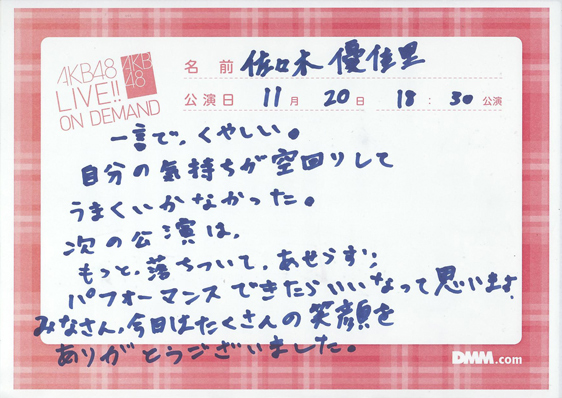 AKB48
LIVE!!
ON DEMAND
AKB
48
名前 佐々木 優佳里
公演日 11月 20日 18:30公演
一言で、くやしい。
自分の気持ちが空回りして
うまくいかなかった。
次の公演は、
もっと、落ちついて、あせらず、
パフォーマンスできたらいいなって思います。
みなさん、今日はたくさんの笑顔を
ありがとうございました。
DMM.com